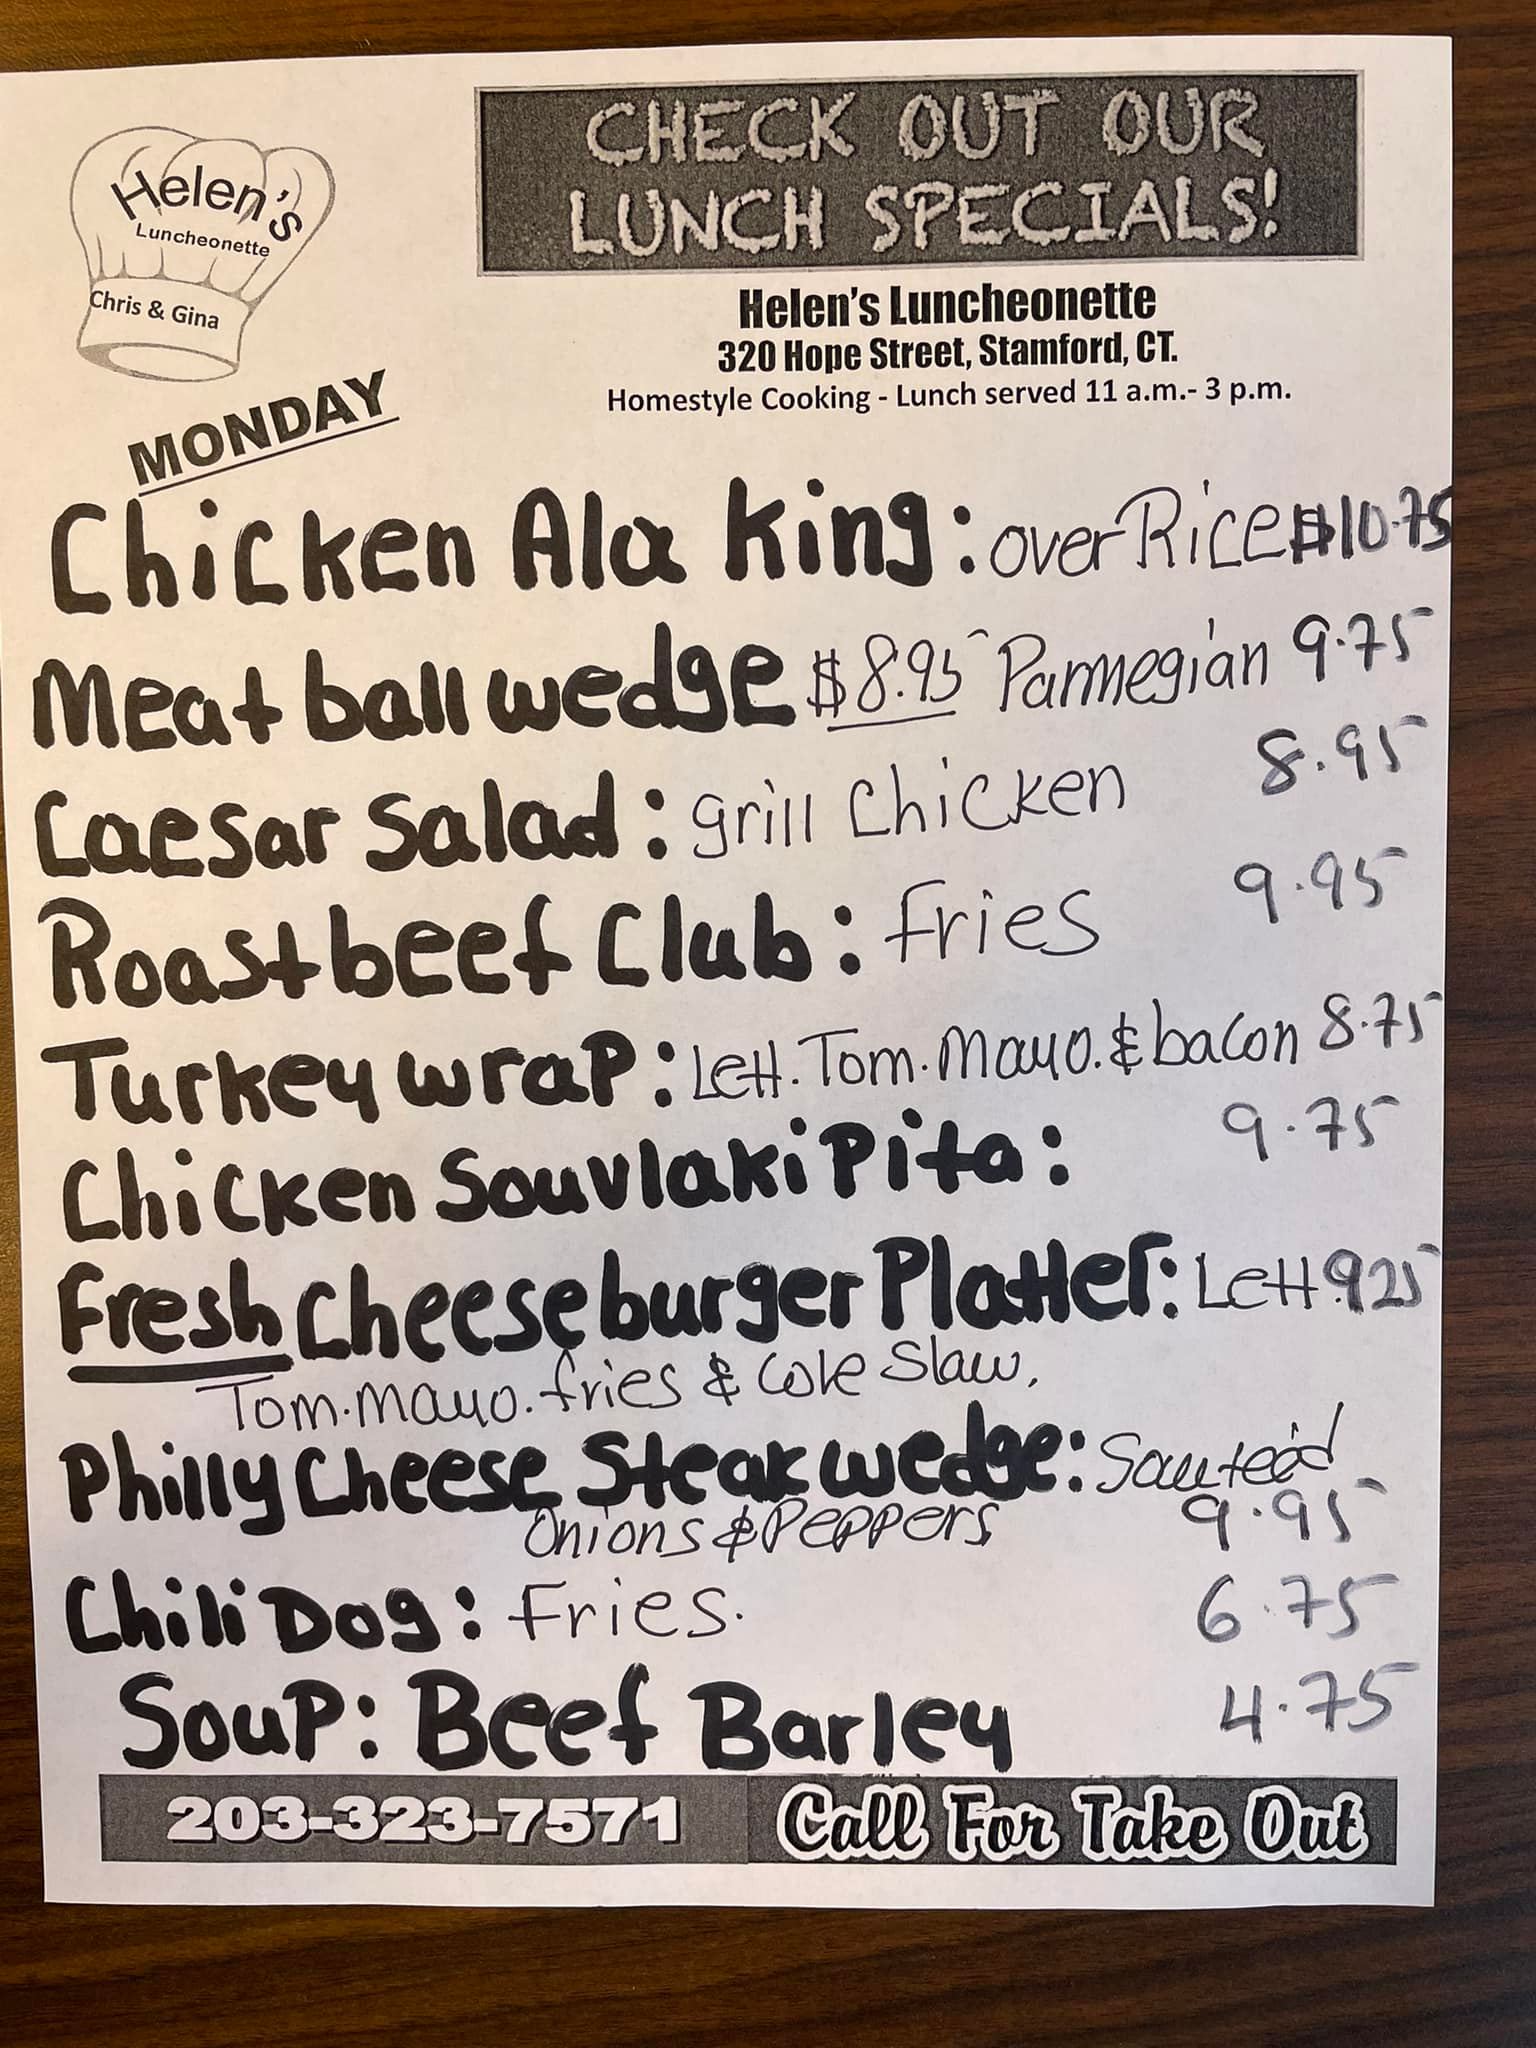 Helen's
Luncheonette
Chris & Gina
CHECK OUT OUR
LUNCH SPECIALS!
Helen's Luncheonette
320 Hope Street, Stamford, CT.
Homestyle Cooking - Lunch served 11 a.m.- 3 p.m.
MONDAY
Chicken Ala King: over Rice $10.75
Meat ball wedge $8.95 Parmegian 9.75
Caesar Salad: grill chicken 8.95
Roastbeef Club: Fries 9.95
Turkey wrap: Lett. Tom. Mayo. & bacon 8.75
Chicken Souvlaki Pita: 9.75
Fresh Cheeseburger Platter: Lett. 9.25
Tom. Mayo. fries & Cole Slaw.
Philly Cheese Steak wedge: Sauteéd
Onions & Peppers 9.95
Chili Dog: Fries. 6.75
Soup: Beef Barley 4.75
203-323-7571 Call For Take Out